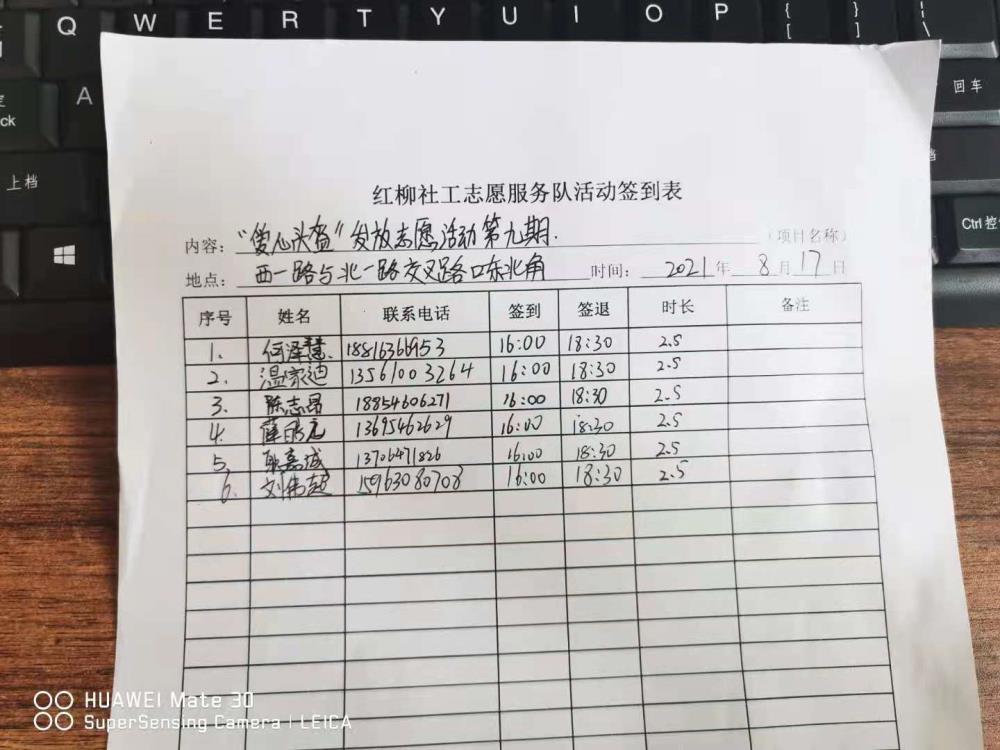 Q W E R T Y U I O P { [ } ] | \
A
ck
上档
回车
档
Ctrl 控
红柳社工志愿服务队活动签到表
内容: "爱心头盔"发放志愿活动第九期. (项目名称)
地点: 西一路与北一路交叉路口东北角 时间: 2021年 8月17日
序号 姓名 联系电话 签到 签退 时长 备注
1. 何泽慧 18816366953 16:00 18:30 2.5
2. 温家迪 13561003264 16:00 18:30 2.5
3. 陈志昂 18854606271 16:00 18:30 2.5
4. 薛 13695462629 16:00 18:30 2.5
5. 耿嘉诚 13706471826 16:00 18:30 2.5
6. 刘伟超 15963080708 16:00 18:30 2.5
HUAWEI Mate 30
SuperSensing Camera | LEICA